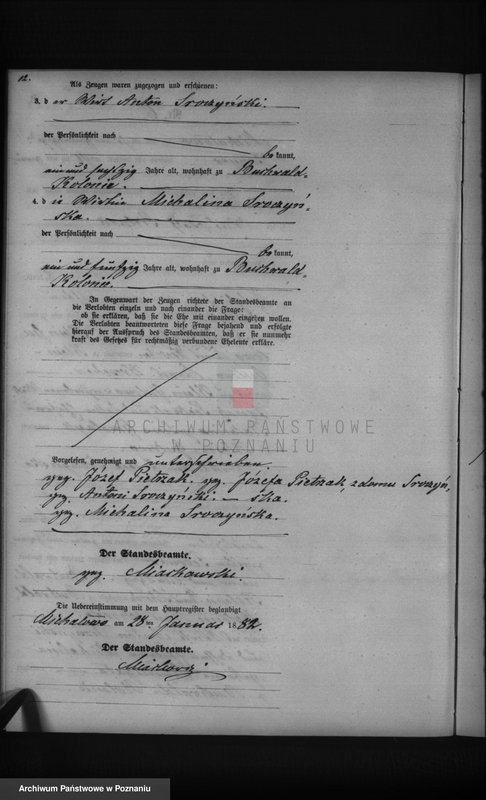 12.
Als Zeugen waren zugezogen und erschienen:
3. d er Wirt Anton Sroczyński.
der Persönlichkeit nach
be kannt,
ein und sechzig Jahre alt, wohnhaft zu Buchwald-
Kolonie.
4. d ie Wirthin Michalina Sroczyń-
ska.
der Persönlichkeit nach
be kannt,
ein und fünfzig Jahre alt, wohnhaft zu Buchwald-
Kolonie.
In Gegenwart der Zeugen richtete der Standesbeamte an
die Verlobten einzeln und nach einander die Frage:
ob sie erklären, daß sie die Ehe mit einander eingehen wollen.
Die Verlobten beantworteten diese Frage bejahend und erfolgte
hierauf der Ausspruch des Standesbeamten, daß er sie nunmehr
kraft des Gesetzes für rechtmäßig verbundene Eheleute erkläre.
ARCHIWUM PAŃSTWOWE
W POZNANIU
Vorgelesen, genehmigt und unterschrieben.
gez. Józef Pietrzak. gez. Józefa Pietrzak, z domu Sroczyń-
gez. Antoni Sroczyński. — ska.
gez. Michalina Sroczyńska.
Der Standesbeamte.
gez. Miaskowski.
Die Uebereinstimmung mit dem Hauptregister beglaubigt
am 28 ten Januar 1882.
Der Standesbeamte.
Archiwum Państwowe w Poznaniu